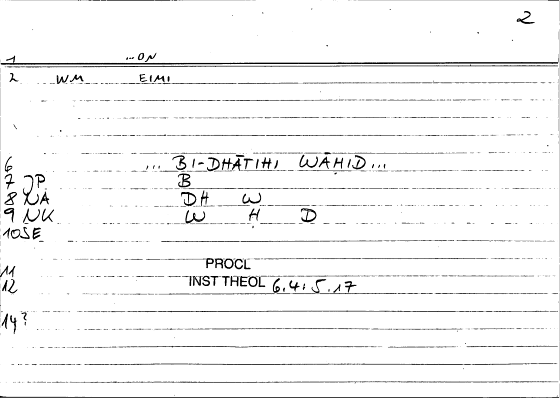 2
1 ...ON
2 WM EIMI
6 ... BI-DHĀTIHI WĀHID...
7 JP B
8 NA DH W
9 NK W H D
10 SE
11 PROCL
12 INST THEOL 6.4:5.17
14?